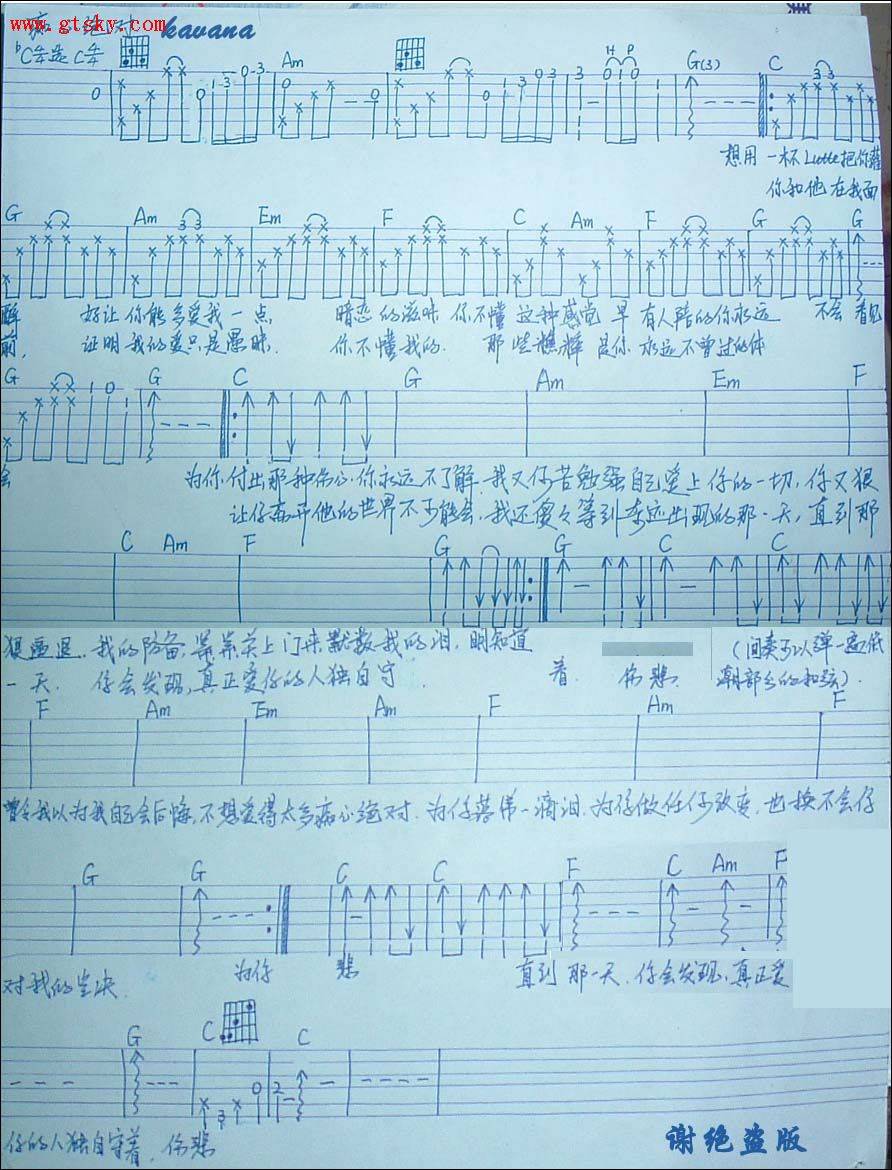 痴 绝对 kavana
www.gtsky.com
♭C
Am G(3) C
H P
想用一杯Latte把你灌
你和他在我面
G Am Em F C Am F G G
醉 好让你能多爱我一点 暗恋的滋味 你不懂 这种感觉 早有人陪的你永远 不会 看见
前, 证明我的爱只是愚昧. 你不懂我的. 那些憔悴 是你 永远不曾过的体
G G C G Am Em F
会 为你,付出那种伤心,你永远不了解.我又何苦勉强自己爱上你的一切,你又狠
让你离开他的世界不可能会.我还傻傻等到奇迹出现的那一天,直到那
C Am F G G C C
狠逼退.我的防备,等等关上门来默数我的泪.明知道
一天. 你会发现,真正爱你的人独自守 着. 伤悲. (间奏可以弹一遍低
潮部分的和弦).
F Am Em Am F Am F
曾经我以为我自己会后悔,不想爱得太多痴心绝对.为你落第一滴泪.为你做任何改变.也换不会你
G G C C F C Am F
对我的坚决. 为你 悲 直到那一天.你会发现,真正爱
G C C
你的人独自守着.伤悲
谢绝盗版